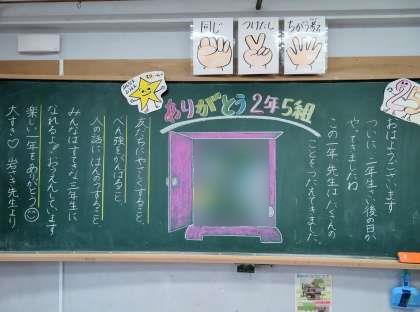 同じ
つけたし
ちがう考え
ありがとう2年5組
おはようございます
ついに二年生さい後の日が
やってきましたね
この一年先生はたくさんの
ことをつたえてきました。
友だちにやさしくすること、
べん強をがんばること、
人の話にはんのうすること
みんなはすてきな三年生に
なれるよ!!おうえんしています
楽しい一年をありがとう
大すき♡ 岩さ先生より